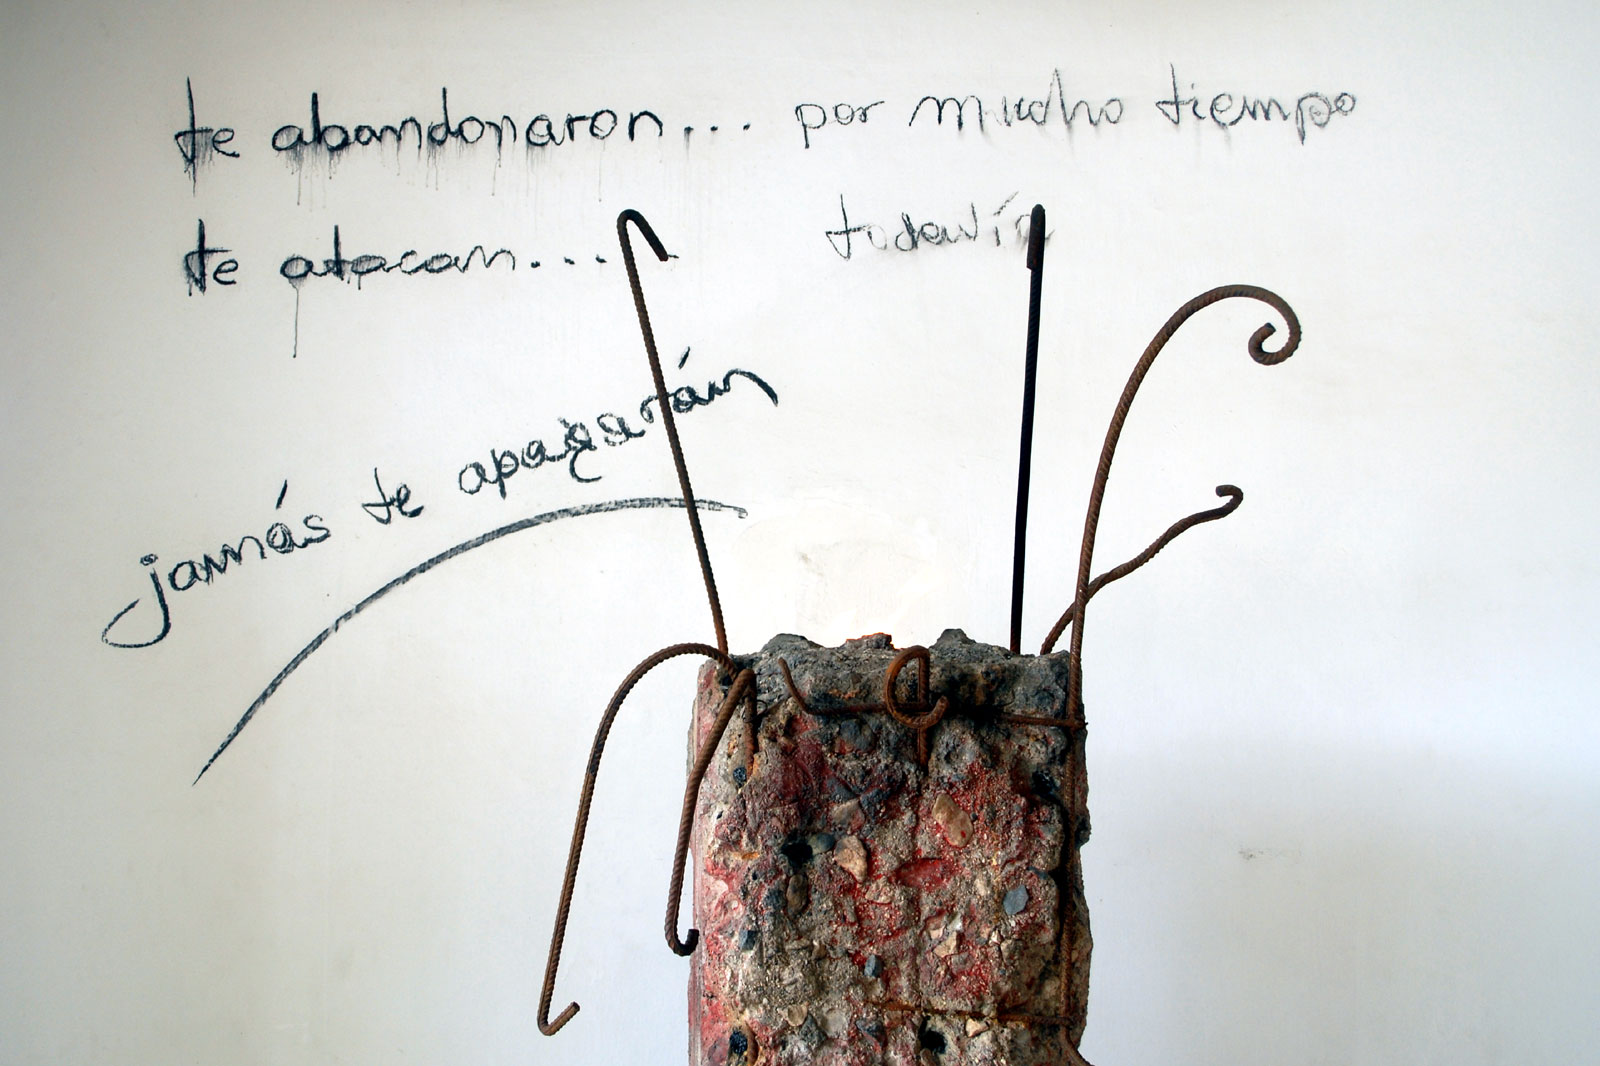 te abandonaron... por mucho tiempo
te atacan.... todavía
jamás te apagarán